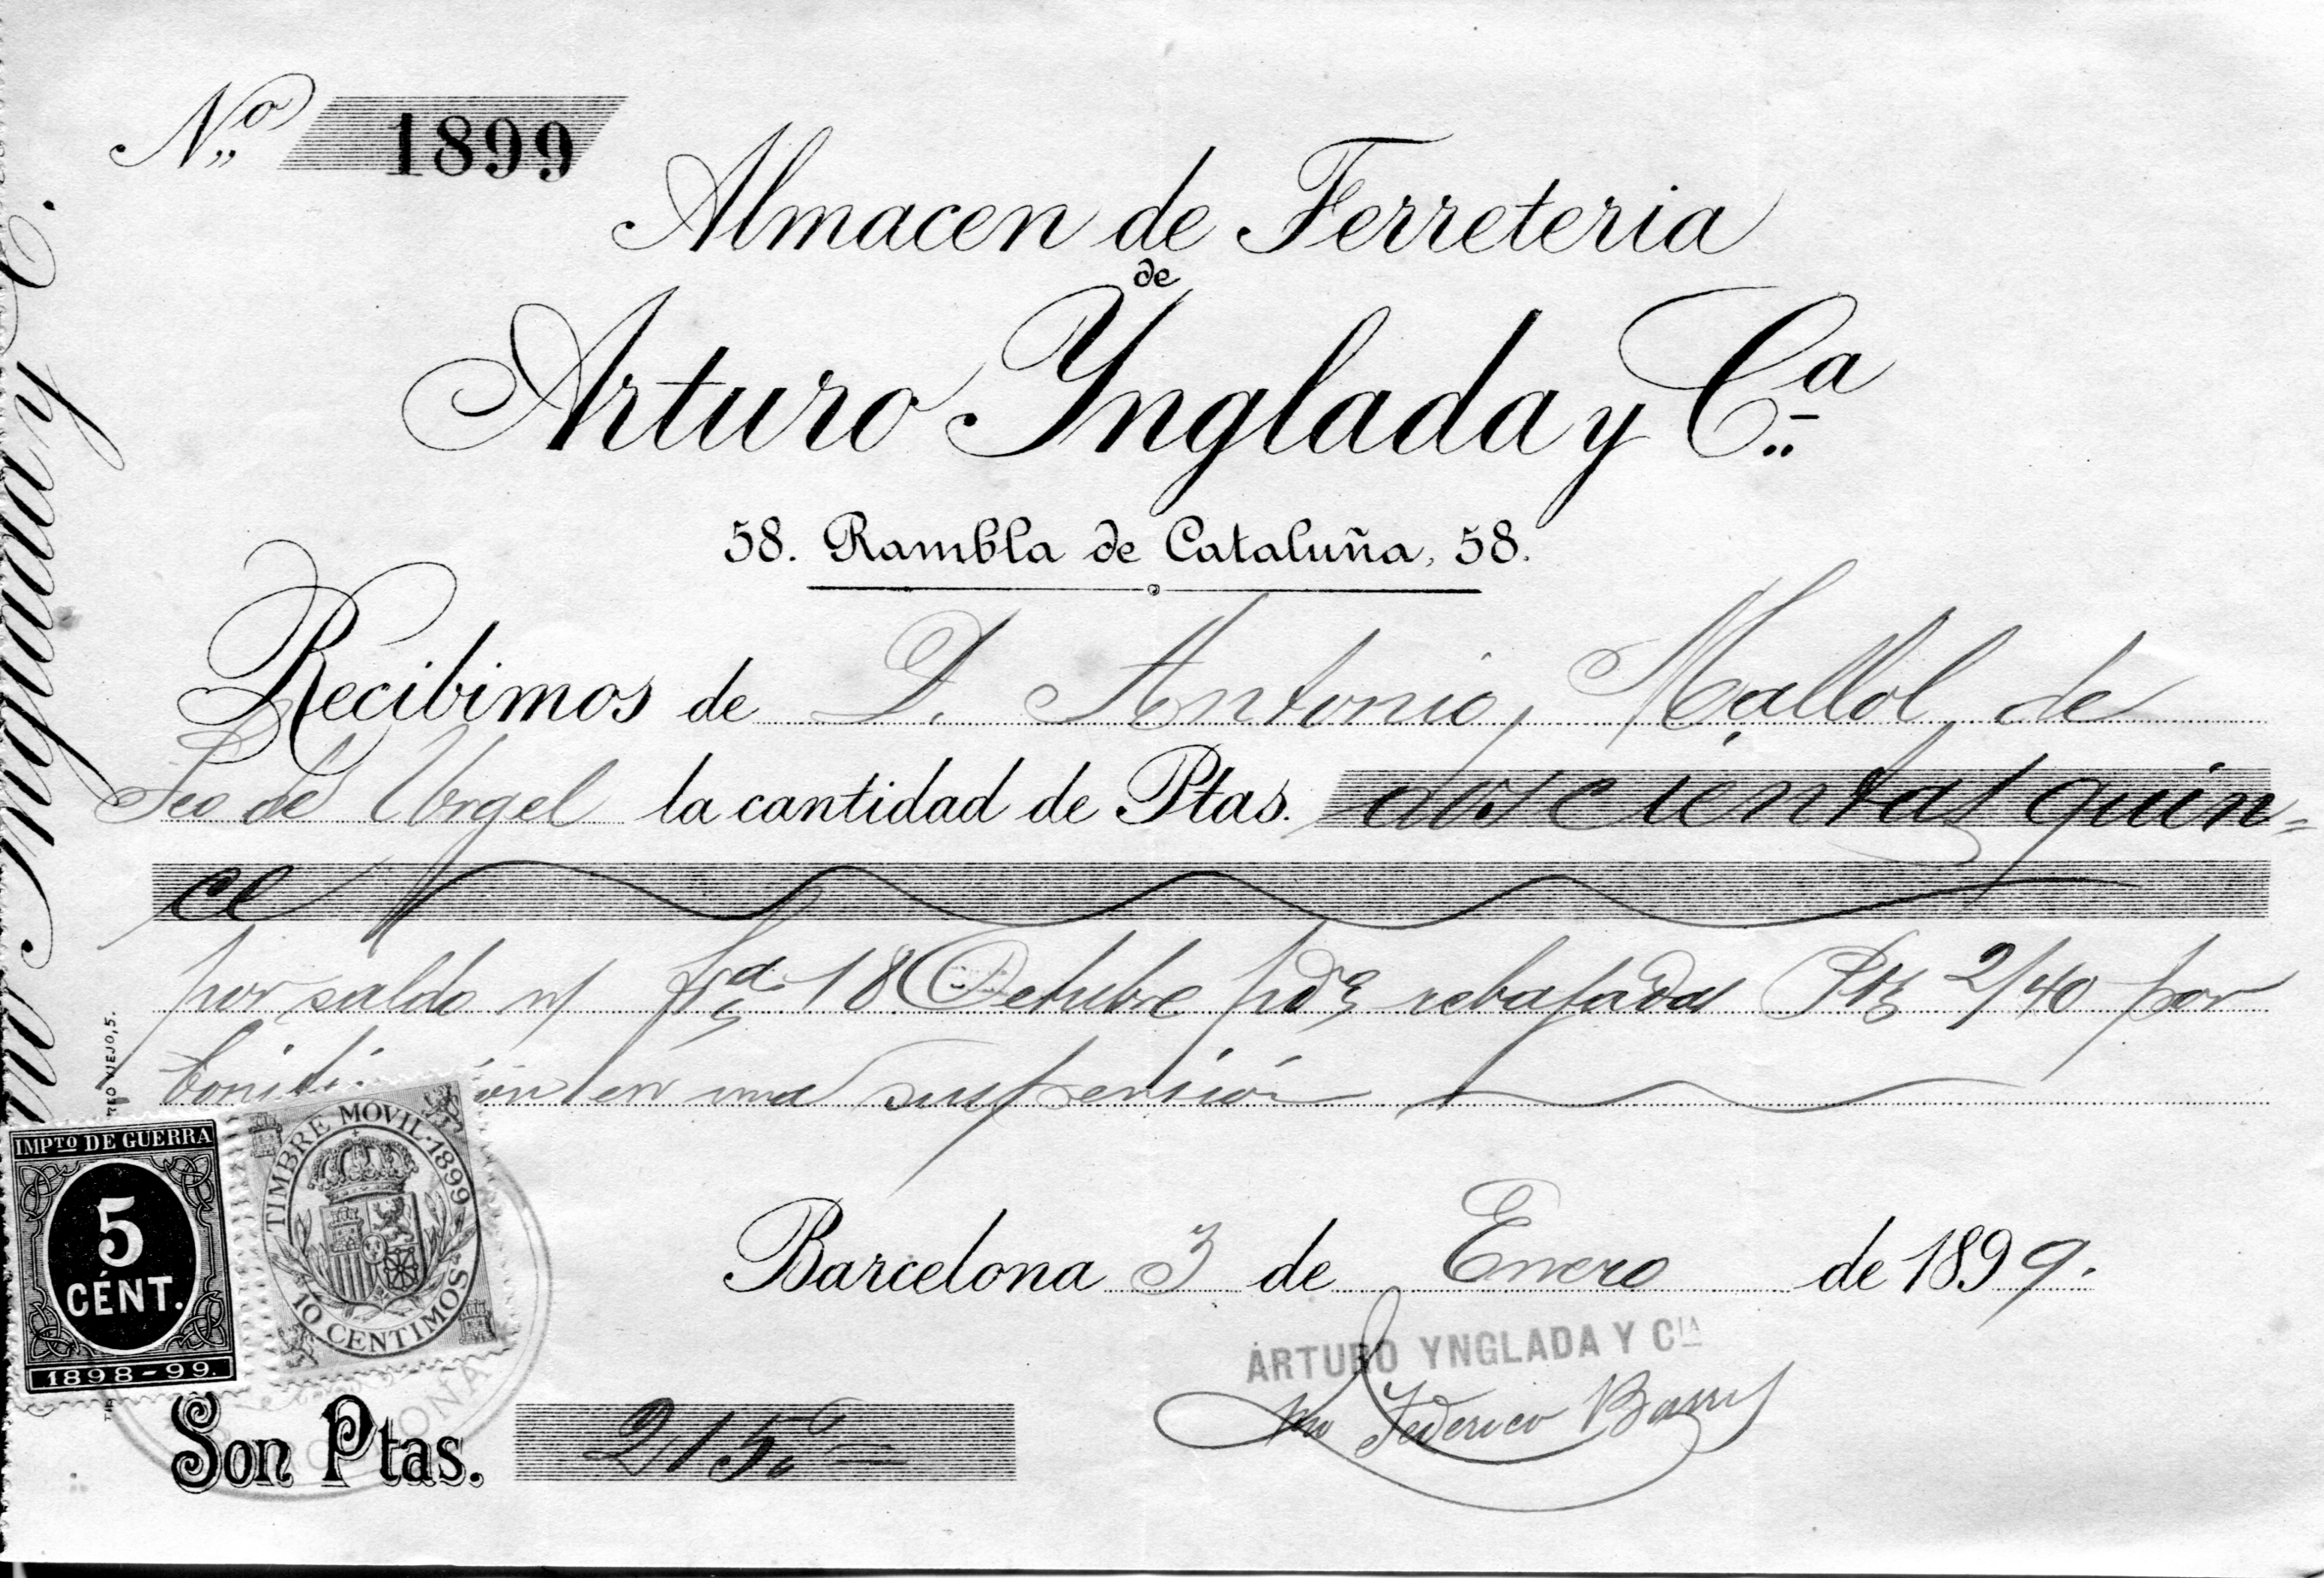 Nº 1899
Almacen de Ferreteria
de
Arturo Ynglada y Cª
58. Rambla de Cataluña, 58.
Recibimos de D. Antonio Mallol, de
Seo de Urgel la cantidad de Ptas. doscientas quin=
ce
por saldo n/ fra 18 Octubre pdo rebajadas Pts 2/40 por
en una suspensión
IMPTO DE GUERRA
5
CÉNT.
1898-99.
TIMBRE MOVIL·1899
10 CENTIMOS
Barcelona 3 de Enero de 1899.
ARTURO YNGLADA Y CIA
Federico
Son Ptas. 215
Ynglada y C.
VIEJO, 5.